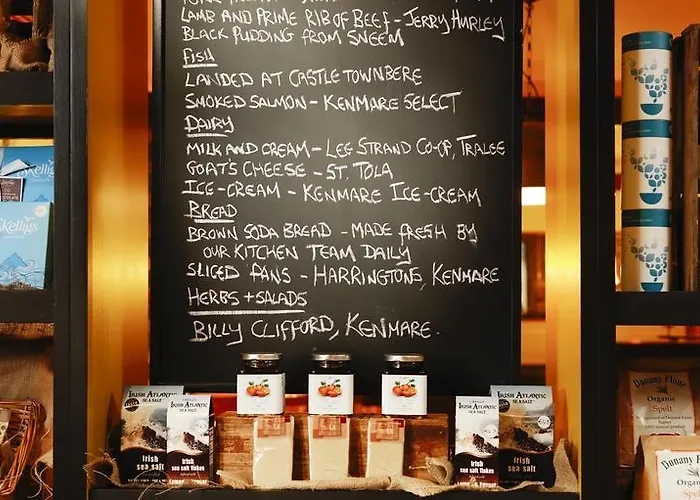 LAMB AND PRIME RIB OF BEEF - JERRY HURLEY
BLACK PUDDING FROM SNEEM
FISH
LANDED AT CASTLETOWNBERE
SMOKED SALMON - KENMARE SELECT
DAIRY
MILK AND CREAM - LEE STRAND CO-OP, TRALEE
GOAT'S CHEESE - ST. TOLA
ICE-CREAM - KENMARE ICE-CREAM
BREAD
BROWN SODA BREAD - MADE FRESH BY
OUR KITCHEN TEAM DAILY
SLICED PANS - HARRINGTONS, KENMARE
HERBS + SALADS
BILLY CLIFFORD, KENMARE.
Skelligs
Skelligs
IRISH ATLANTIC
SEA SALT
Irish
sea salt
IRISH ATLANTIC
SEA SALT
Irish
sea salt flakes
Irish
sea salt flakes
IRISH ATLANTIC
SEA SALT
Irish
sea salt
Dunany Flour
Organic
Spelt
Dunany Flour
Organic